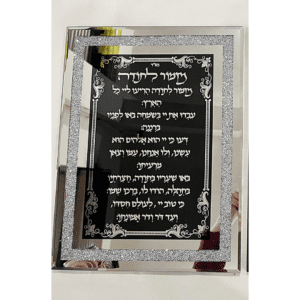 מזמור לתודה
מזמור לתודה הריעו לײ כל
הארץ:
עבדו את יי בשמחה באו לפניו
ברננה:
דעו כי יי הוא אלהים הוא
עשנו, ולו אנחנו, עמו וצאן
מרעיתו:
באו שעריו בתודה, חצרותיו
בתהלה, הודו לו, ברכו שמו:
כי טוב יי, לעולם חסדו,
ועד דר ודר אמונתו: